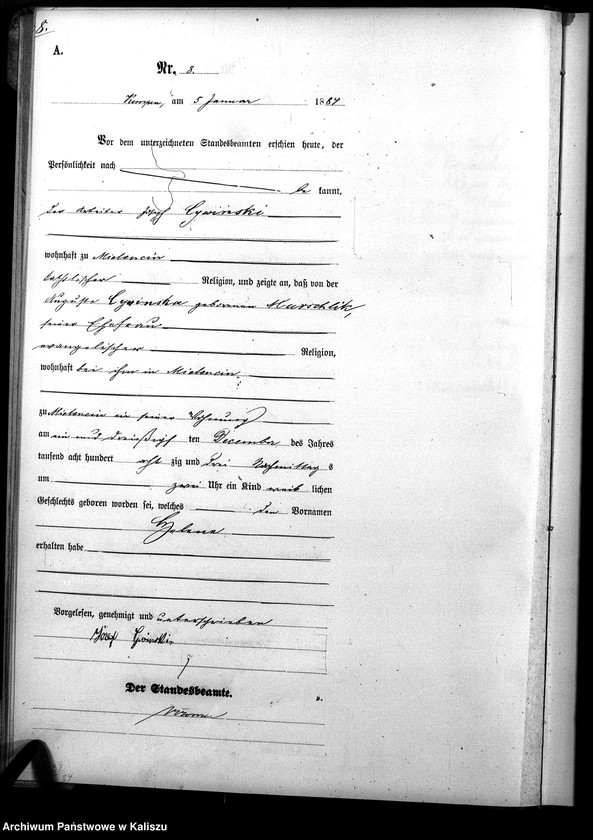 8.
A.
Nr. 8.
Kempen, am 5 Januar 1884
Vor dem unterzeichneten Standesbeamten erschien heute, der
Persönlichkeit nach
be kannt,
der Arbeiter Josef Cywinski
wohnhaft zu Mielencin
katholischer Religion, und zeigte an, daß von der
Auguste Cywinska geborenen Marschlik,
seiner Ehefrau
evangelischer Religion,
wohnhaft bei ihm in Mielencin
zu Mielencin in seiner Wohnung
am ein und dreißigsten December des Jahres
tausend acht hundert acht zig und drei Nachmittag s
um zwei Uhr ein Kind weib lichen
Geschlechts geboren worden sei, welches den Vornamen
Helene
erhalten habe
Vorgelesen, genehmigt und unterschrieben
Józef
Der Standesbeamte.
Archiwum Państwowe w Kaliszu